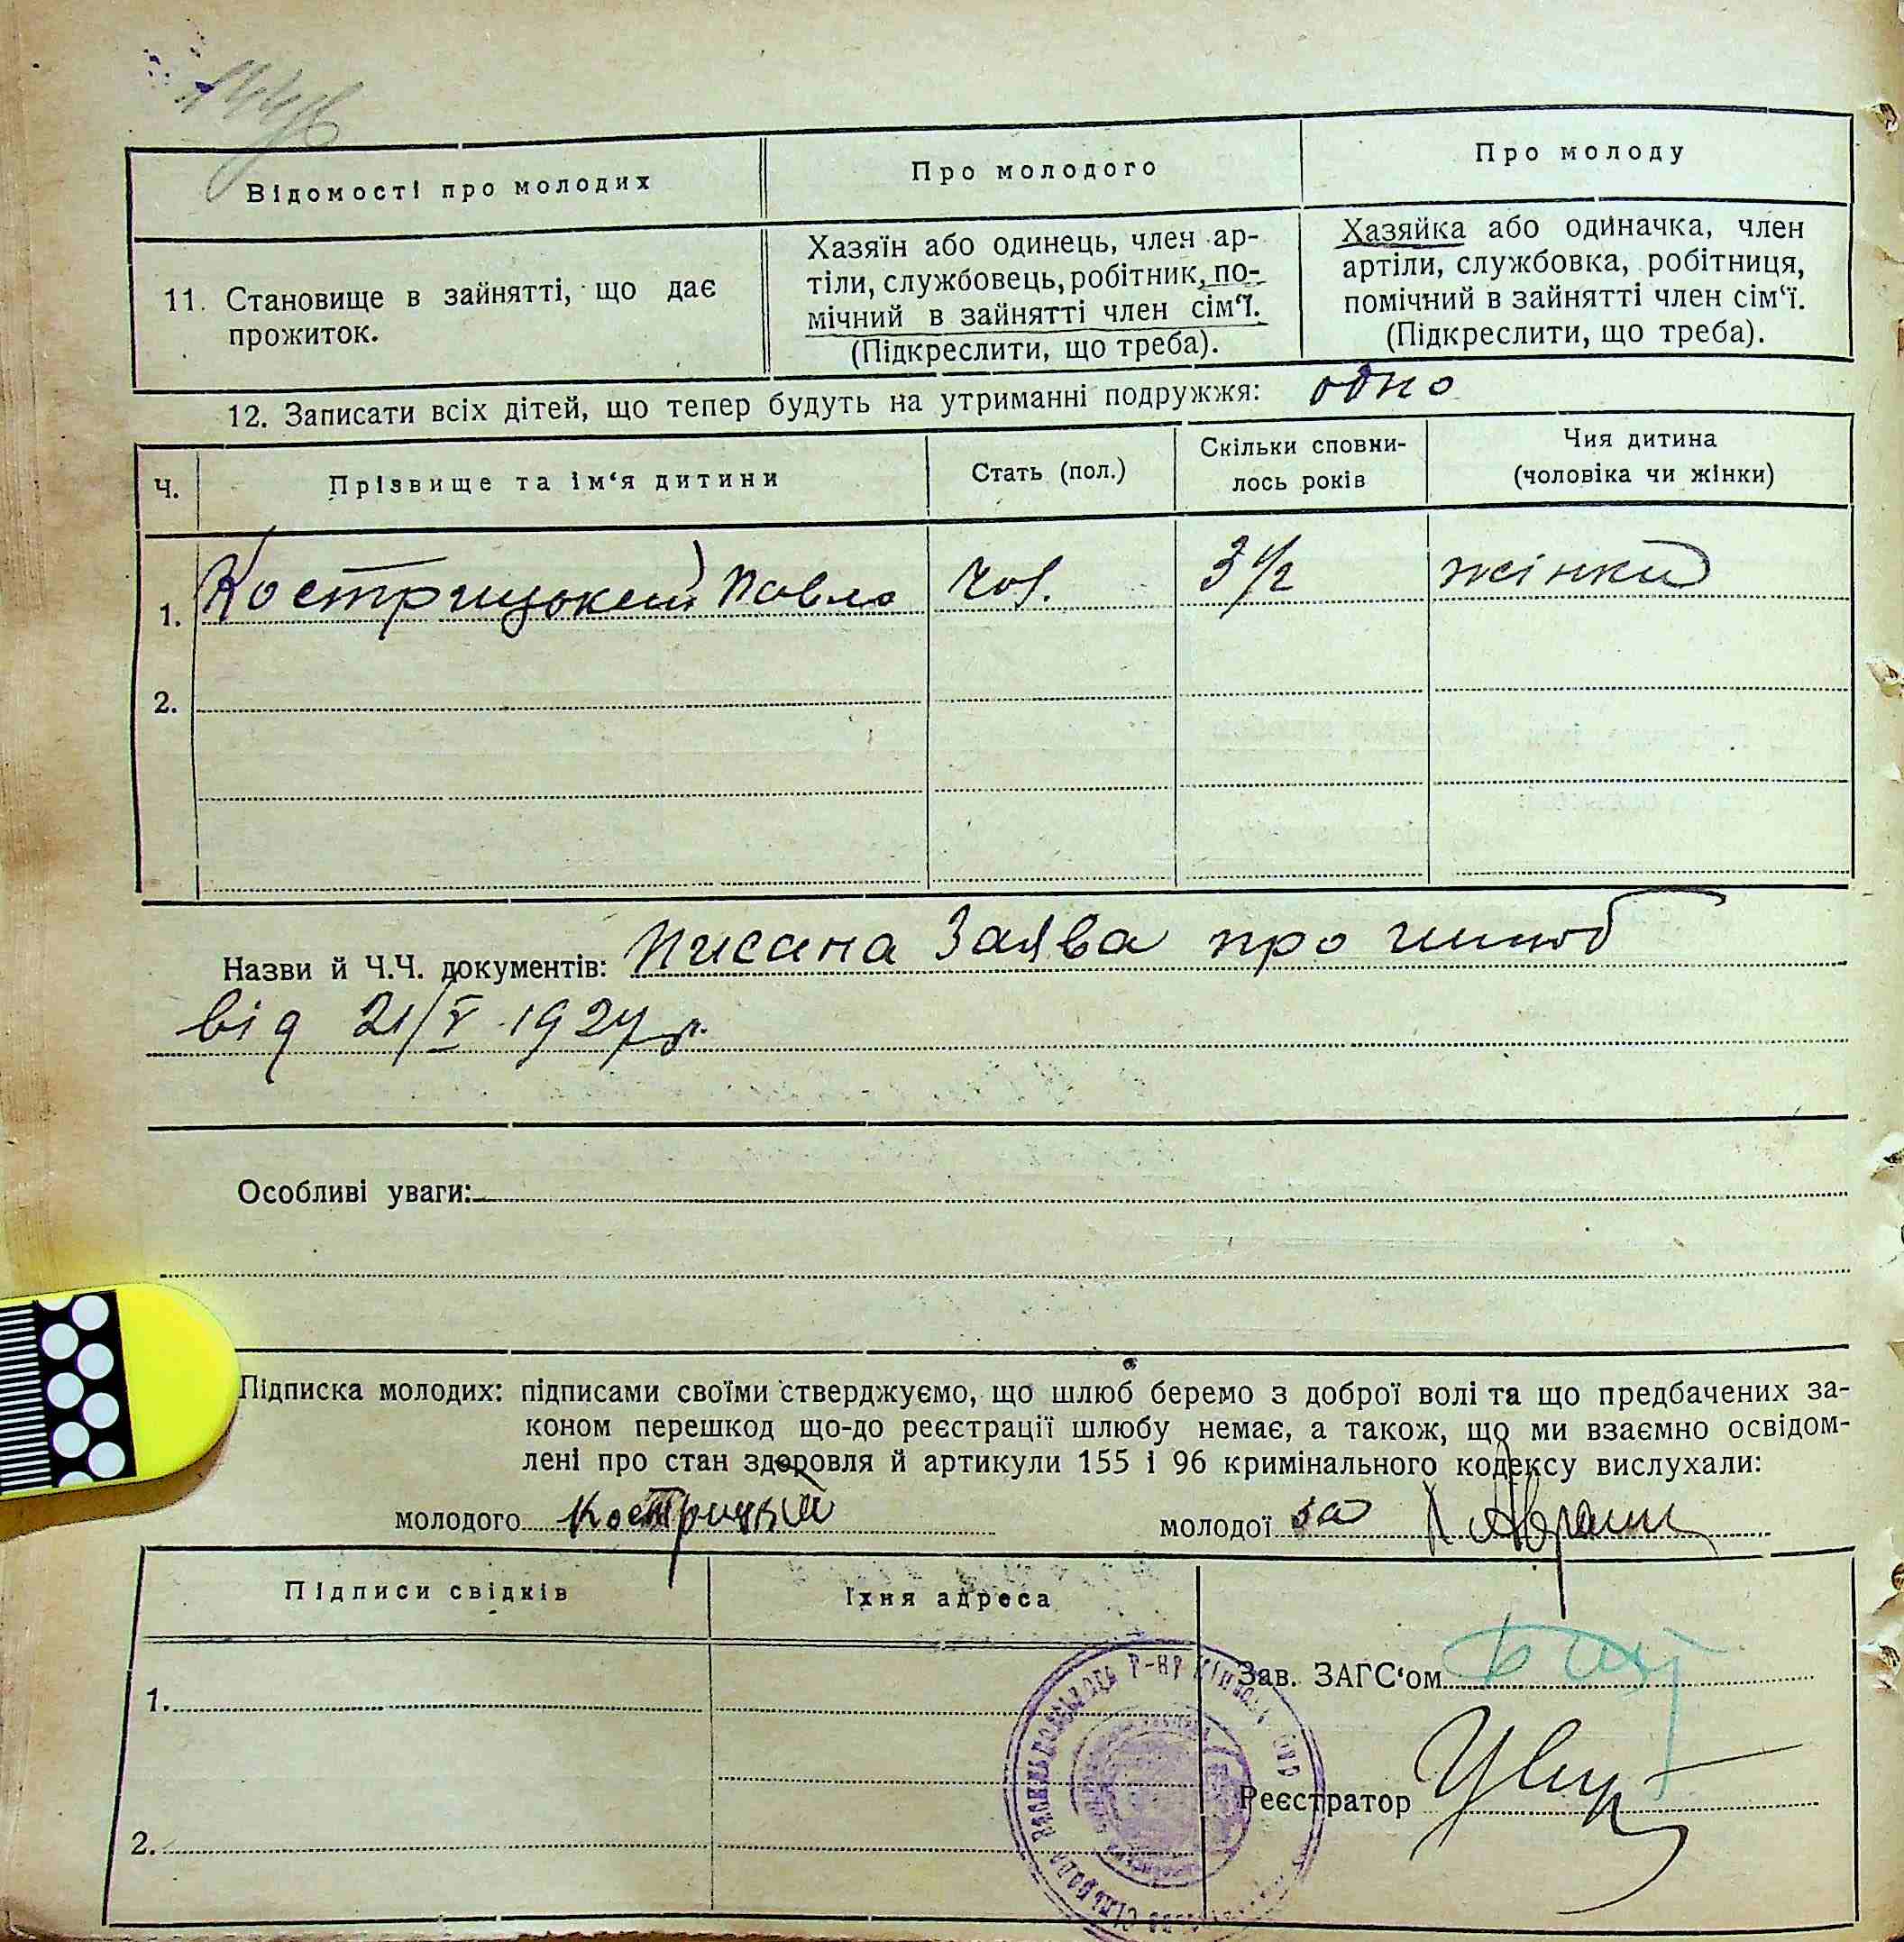 Відомості про молодих
Про молодого
Про молоду
11. Становище в зайнятті, що дає
прожиток.
Хазяїн або одинець, член ар-
тіли, службовець, робітник, по-
мічний в зайнятті член сім‘ї.
(Підкреслити, що треба).
Хазяйка або одиначка, член
артіли, службовка, робітниця,
помічний в зайнятті член сім‘ї.
(Підкреслити, що треба).
12. Записати всіх дітей, що тепер будуть на утриманні подружжя: одно
Ч.
Прізвище та ім‘я дитини
Стать (пол.)
Скільки сповни-
лось років
Чия дитина
(чоловіка чи жінки)
1. Кострицький Павло чол. 3 1/2 жінки
2.
Назви й Ч.Ч. документів: Писана Заява про шлюб
від 21/V 1927 р.
Особливі уваги:
Підписка молодих: підписами своїми стверджуємо, що шлюб беремо з доброї волі та що предбачених за-
коном перешкод що-до реєстрації шлюбу немає, а також, що ми взаємно освідом-
лені про стан здоровля й артикули 155 і 96 кримінального кодексу вислухали:
молодого Кострицький молодої за
Підписи свідків
Їхня адреса
1.
2.
Зав. ЗАГС‘ом
Реєстратор